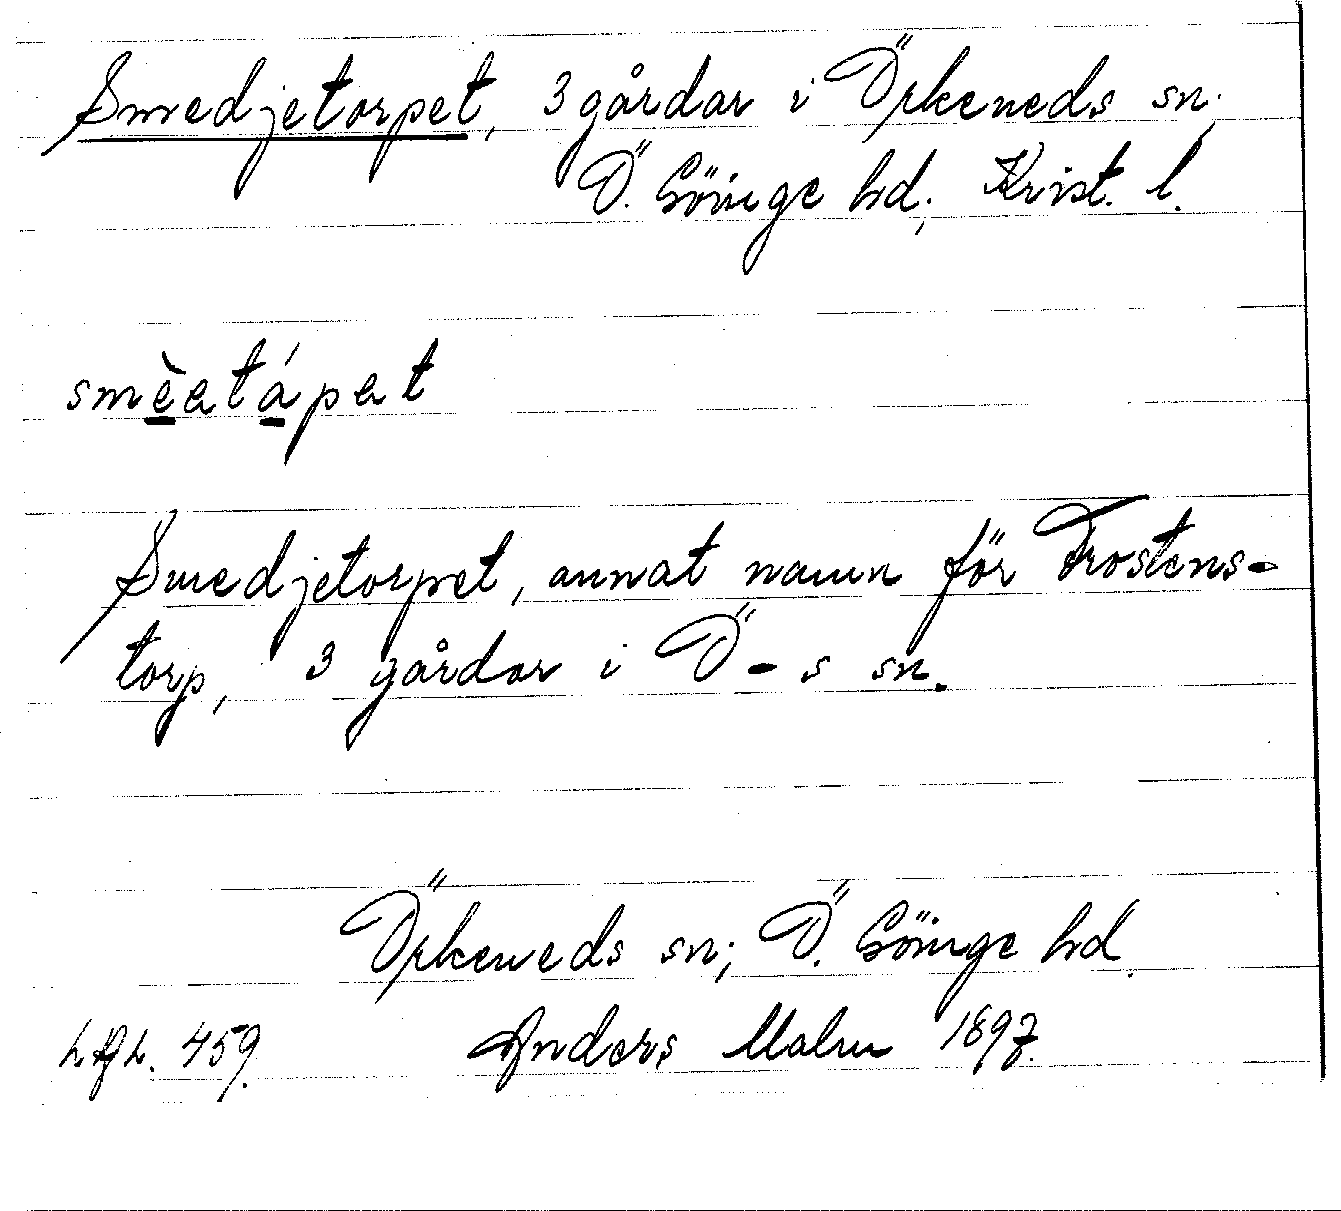 Smedjetorpet, 3 gårdar i Örkeneds sn;
Ö. Göinge hd; Krist. l.
smèatápat
Smedjetorpet, annat namn för Trostens-
torp, 3 gårdar i Ö-s sn.
Örkeneds sn; Ö. Göinge hd.
459. Anders Malm 1897.